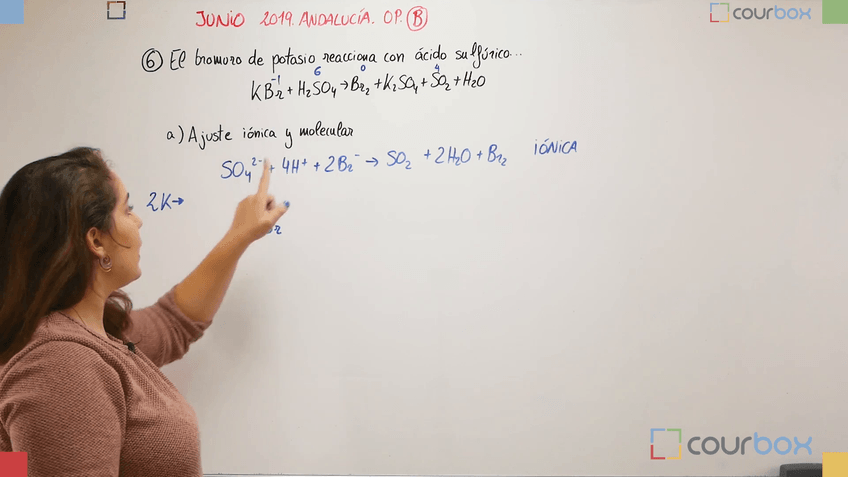 JUNIO 2019. ANDALUCÍA. OP. B
courbox
6 El bromuro de potasio reacciona con ácido sulfúrico...
-1 6 0 4
KBr + H2SO4 → Br2 + K2SO4 + SO2 + H2O
a) Ajuste iónica y molecular
SO4²⁻ + 4H⁺ + 2Br⁻ → SO2 + 2H2O + Br2 IÓNICA
2K→
courbox